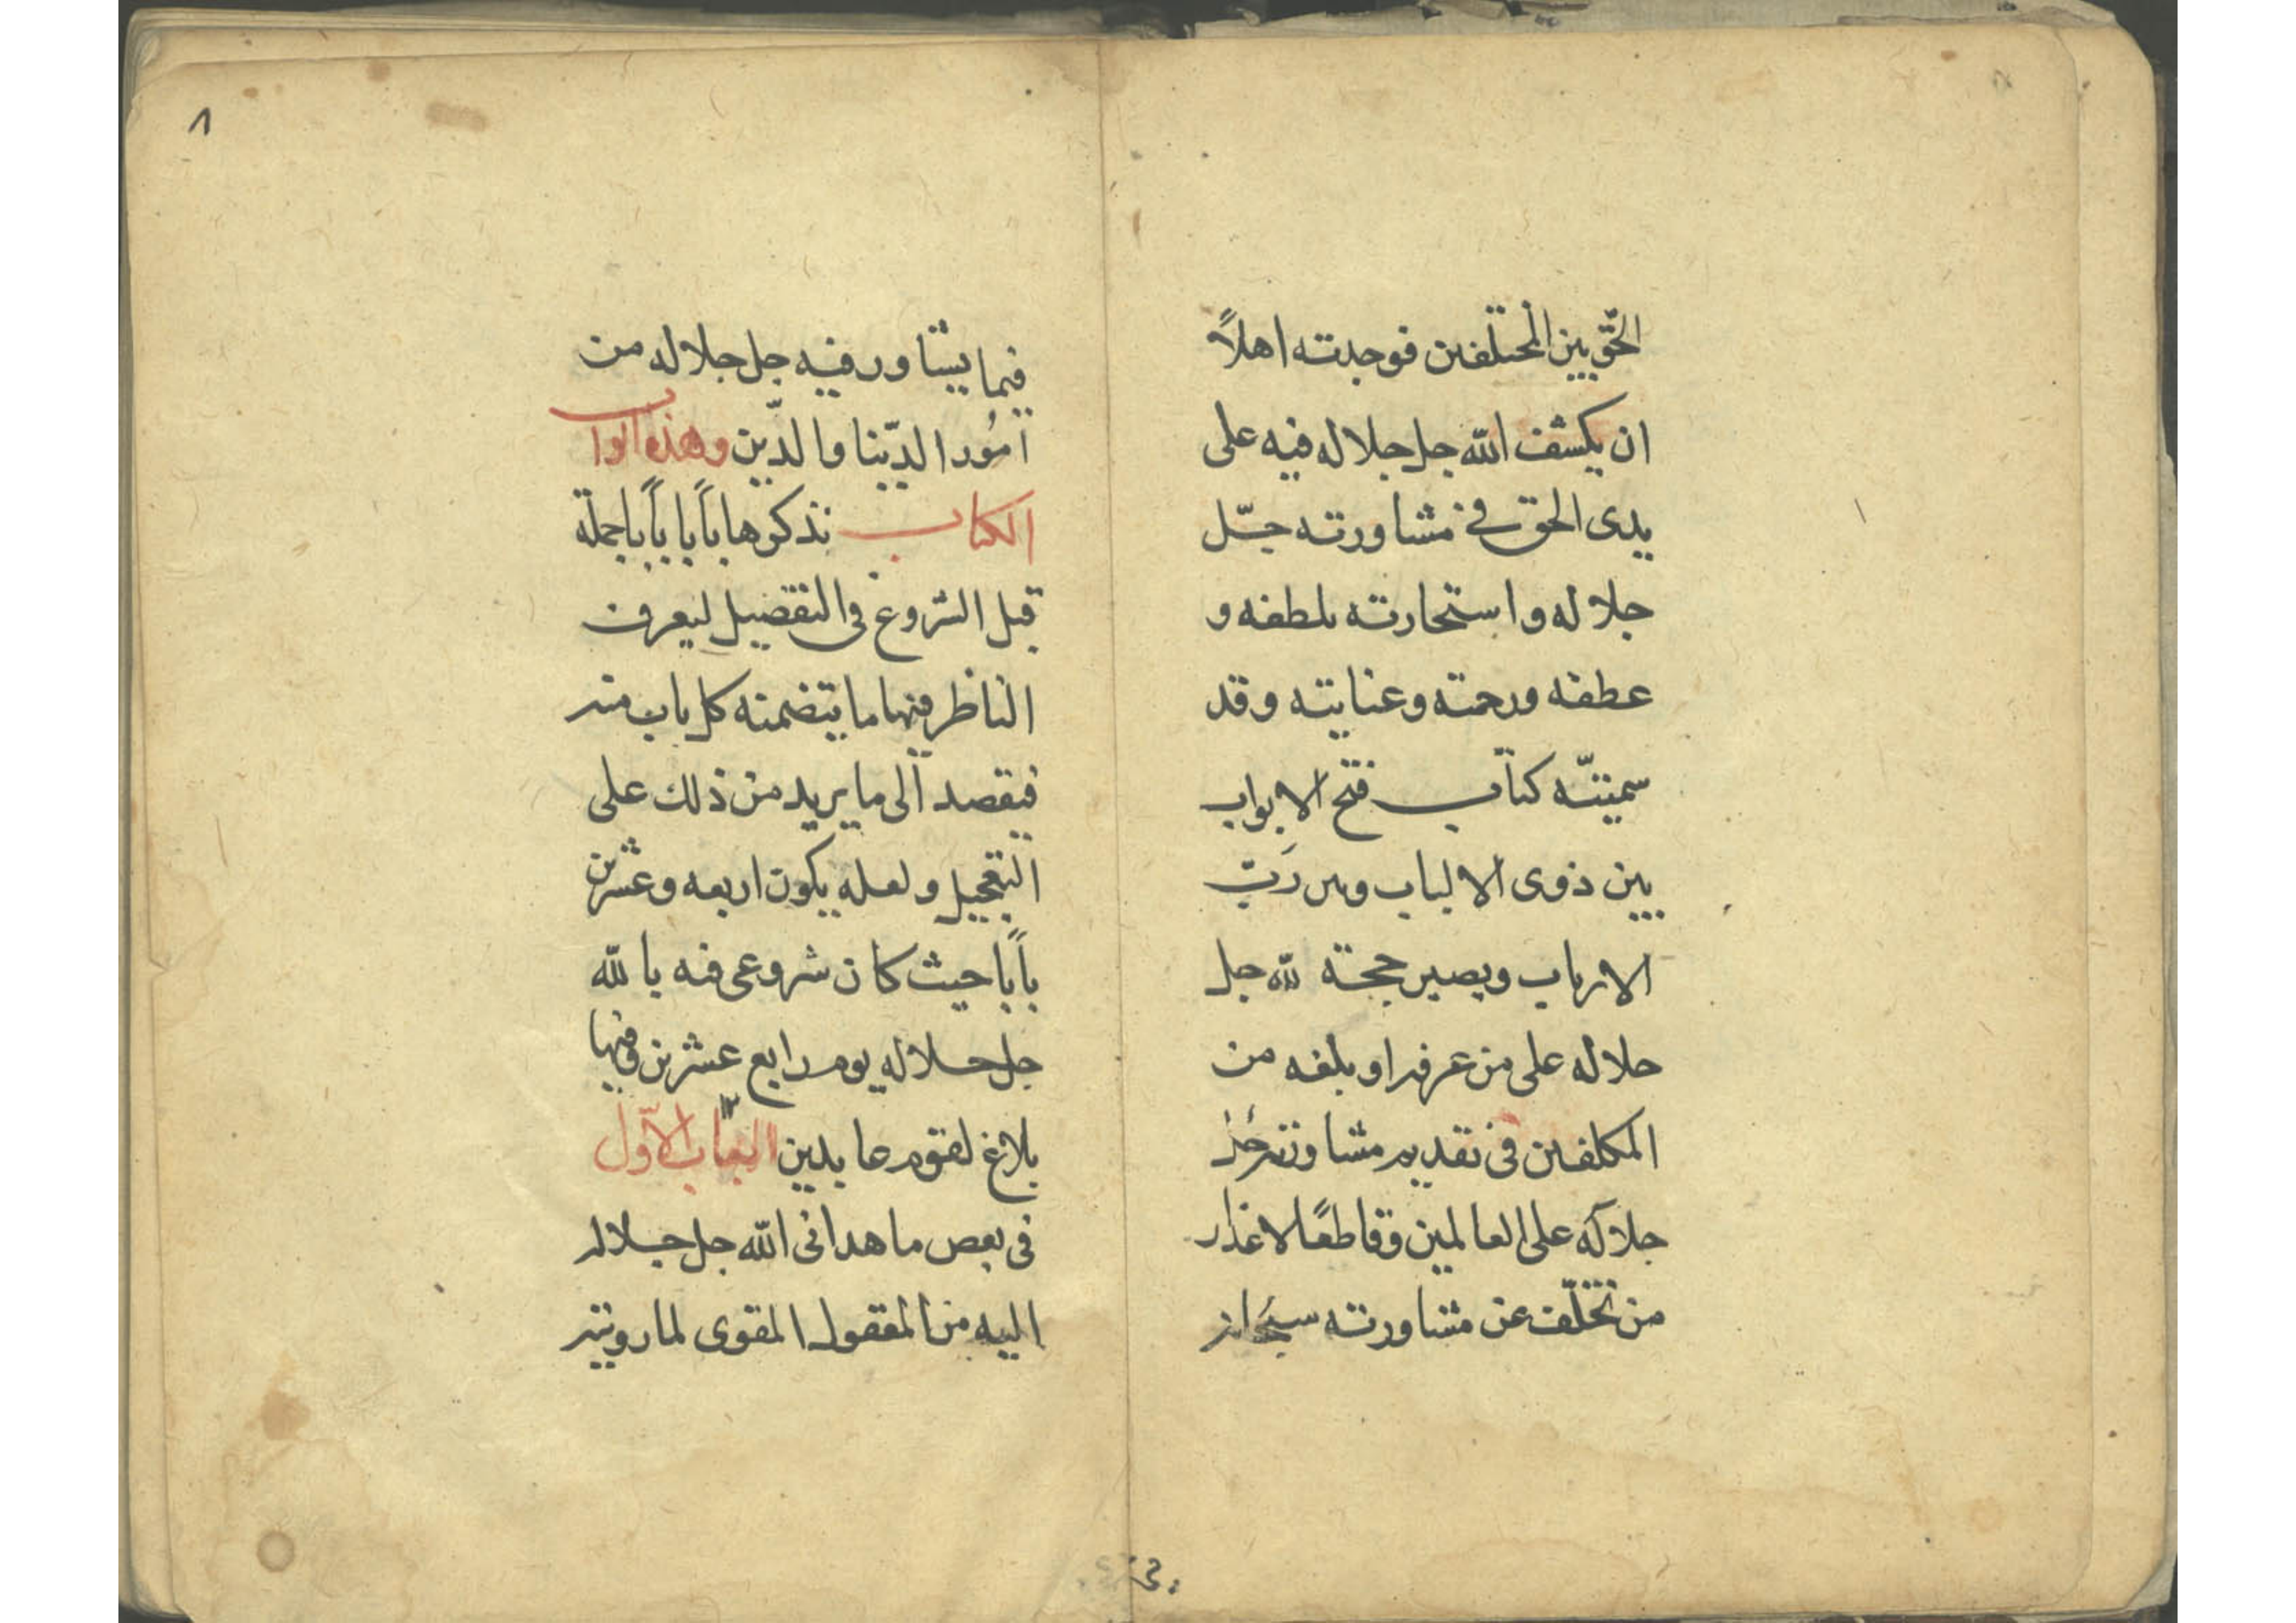 الحقّ بين المختلفين فوجدته اهلاً
ان يكشف الله جل جلاله فيه على
يدى الحق في مشاورته جلّ
جلاله واستخارته بلطفه و
عطفه ورحمته وعنايته وقد
سميتّه كتاب فتح الابواب
بين ذوى الالباب وبين رَبّ
الارباب ويصير حجته لله جل
جلاله على من عرفه او بلغه من
المكلفين فى تقديم مشاورته جل
جلاله على العالمين وقاطعًا لاعذار
من تخلّف عن مشاورته سبحانه
٨
فيما يشاور فيه جل جلاله من
اُمُور الدّنيا والدّين وهذه ابواب
الكتاب نذكرها باباً باباً باجملة
قبل الشروع فى التفضيل ليعرف
الناظر فيها ما يتضمنه كل باب منه
فيقصد الى ما يريد من ذلك على
التعجيل ولعله يكون اربعه وعشرين
باباً حيث كان شروعى فيه بالله
جل جلاله يوم رابع عشرين وفيها
بلاغ لقوم عابدين الباب الاوّل
فى بعض ما هدانى الله جل جلاله
اليه من المعقول المقوى لما رويته